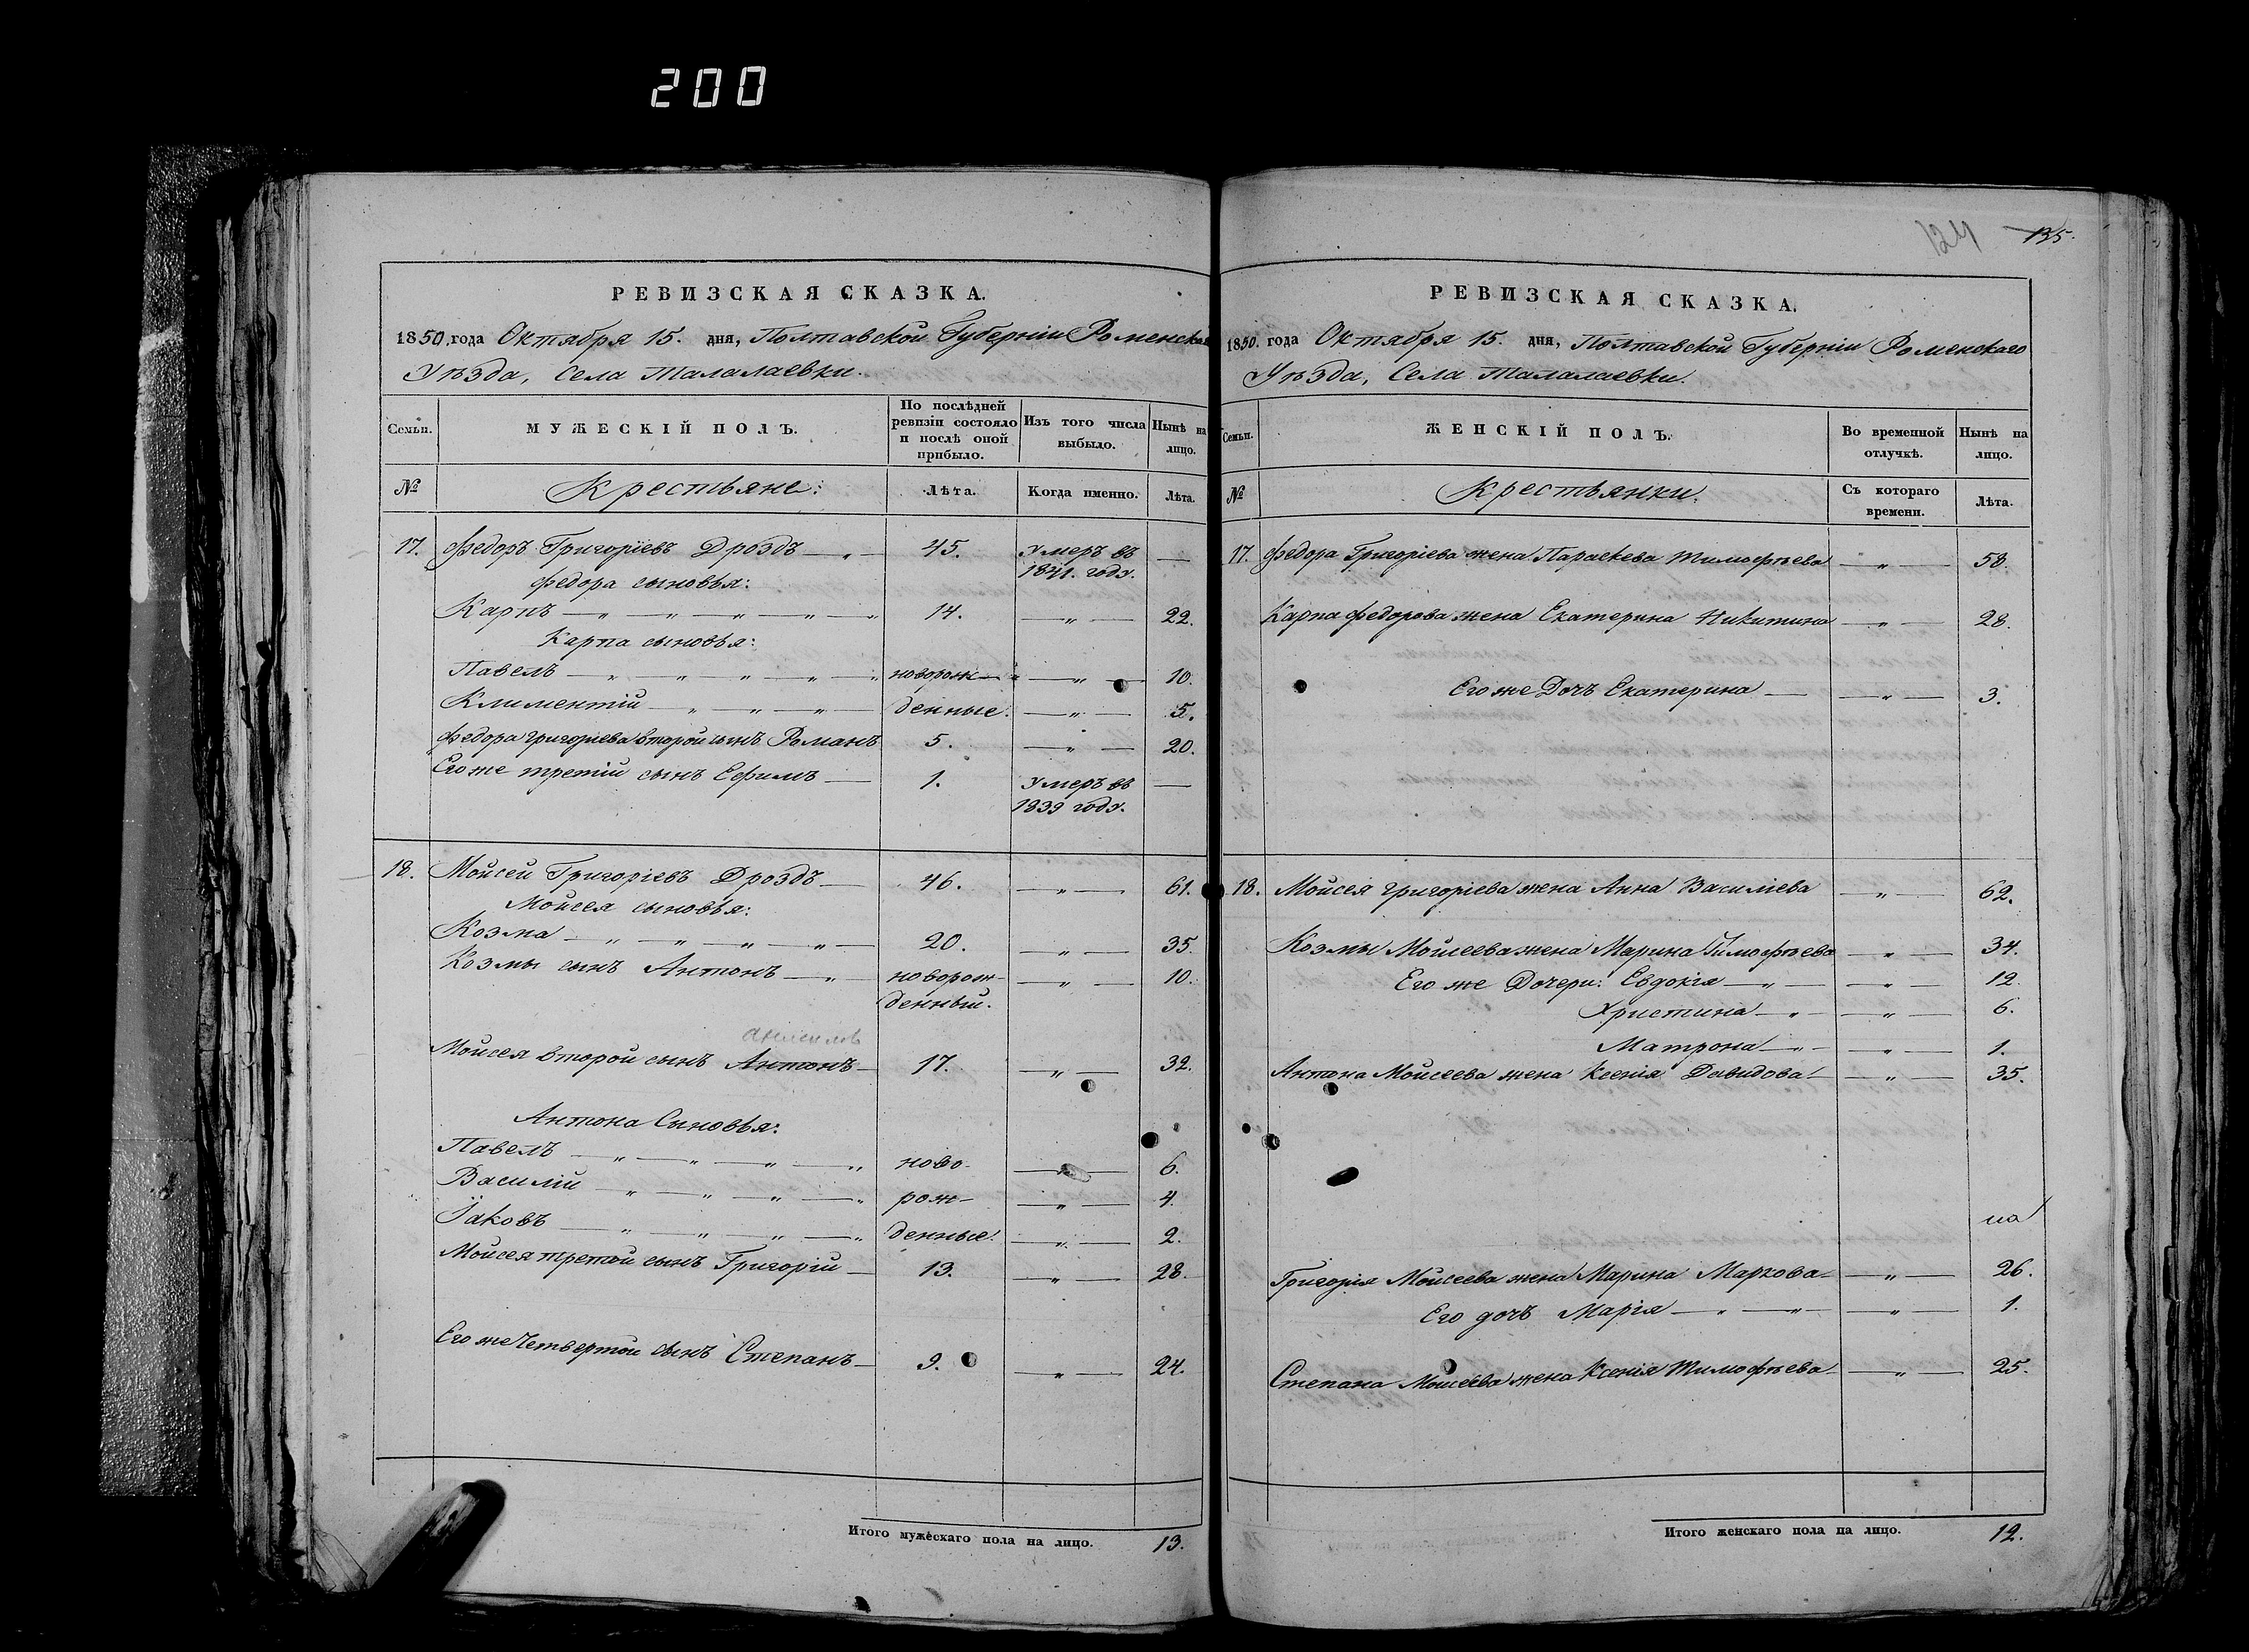 200
124 135.
РЕВИЗСКАЯ СКАЗКА.
1850. года Октября 15. дня, Полтавской Губерніи Роменска
Уѣзда, Села Талалаевки.
Семьи.
МУЖЕСКІЙ ПОЛЪ.
По послѣдней ревизіи состояло и послѣ оной прибыло.
Изъ того числа выбыло.
Нынѣ на лицо.
№ Крестьяне: Лѣта. Когда именно. Лѣта.
17. Федоръ Григоріевъ Дроздъ — „ — 45. Умеръ въ 1841. году. —
Федора сыновья:
Карпъ — „ — „ — „ — „ — „ 14. — „ — 22.
Карпа сыновья:
Павелъ — „ — „ — „ — „ — „ новорож— — „ — 10.
Климентій — „ — „ — „ — денные. — „ — 5.
Федора григоріева второй сынъ Романъ 5. — „ — 20.
Его же третій сынъ Ефимъ — 1. Умеръ въ 1839 году. —
18. Мойсей Григоріевъ Дроздъ — 46. — „ — 61.
Мойсея сыновья:
Козма — „ — „ — „ — „ — 20. — „ — 35.
Козмы сынъ Антонъ — „ новорож- — „ — 10.
денный.
Мойсея второй сынъ Антонъ — 17. — „ — 32.
Антона Сыновья:
Павелъ — „ — „ — „ — „ ново- — „ — 6.
Василій — „ — „ — „ — „ рож- — „ — 4.
Іаковъ — „ — „ — „ — „ денные. — „ — 2.
Мойсея третой сынъ Григорій — 13. — „ — 28.
Его же Четвертой сынъ Степанъ — 9. — „ — 24.
Итого мужескаго пола на лицо. 13.
РЕВИЗСКАЯ СКАЗКА.
1850. года Октября 15. дня, Полтавской Губерніи Роменскаго
Уѣзда, Села Талалаевки.
Семьи.
ЖЕНСКІЙ ПОЛЪ.
Во временной отлучкѣ.
Нынѣ на лицо.
№ Крестьянки. Съ котораго времени. Лѣта.
17. Федора Григоріева жена Параскева Тимофѣева — „ — 58.
Карпа Федорова жена Екатерина Никитина — „ — 28.
Его же Дочъ Екатерина — — „ — 3.
18. Мойсея григоріева жена Анна Василіева — „ — 62.
Козмы Мойсеева жена Марина Тимофѣева — „ — 34.
Его же Дочери: Евдокія — „ — — „ — 12.
Христина — „ — — „ — 6.
Матрона — „ — — „ — 1.
Антона Мойсеева жена Ксенія Давидова — — „ — 35.
Григорія Мойсеева жена Марина Маркова — — „ — 26.
Его дочъ Марія — „ — „ — — „ — 1.
Степана Мойсеева жена Ксенія Тимофѣева — — „ — 25.
Итого женскаго пола на лицо. 12.